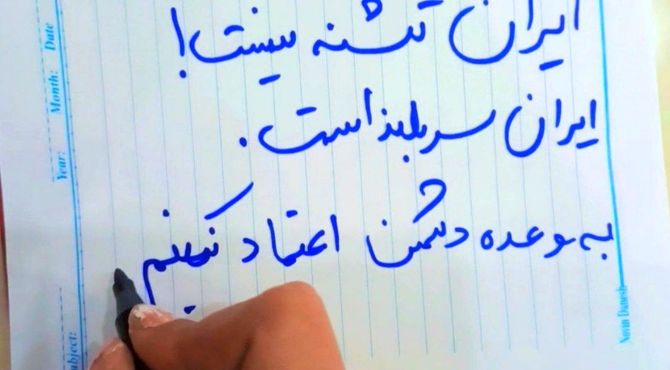 ایران تشنه نیست!
ایران سربلند است.
به وعده دشمن اعتماد نکنیم
Date
Month:
Year:
ubject:
Novin Danesh